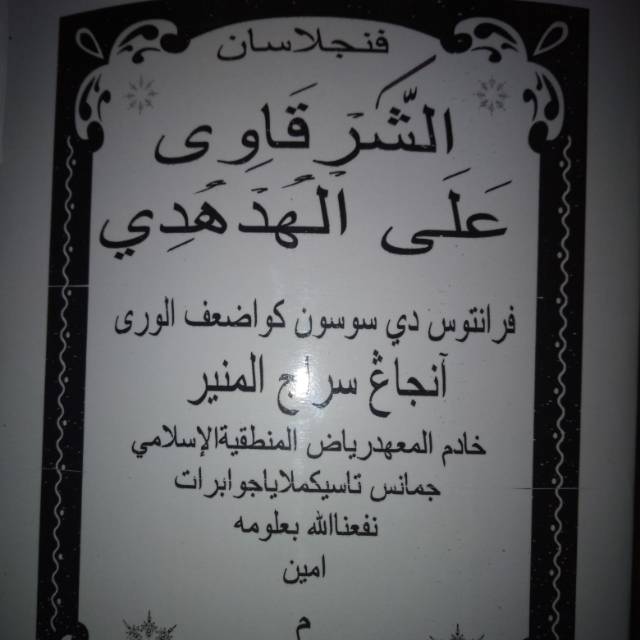 فنجلاسان
الشَّرْقَاوِى
عَلَى الْهُدْهُدِي
فرانتوس دي سوسون كو اضعف الورى
آنجاڠ سراج المنير
خادم المعهد رياض المنطقية الإسلامي
جمانس تاسيكملايا جوا برات
نفعنا الله بعلومه
امين
م